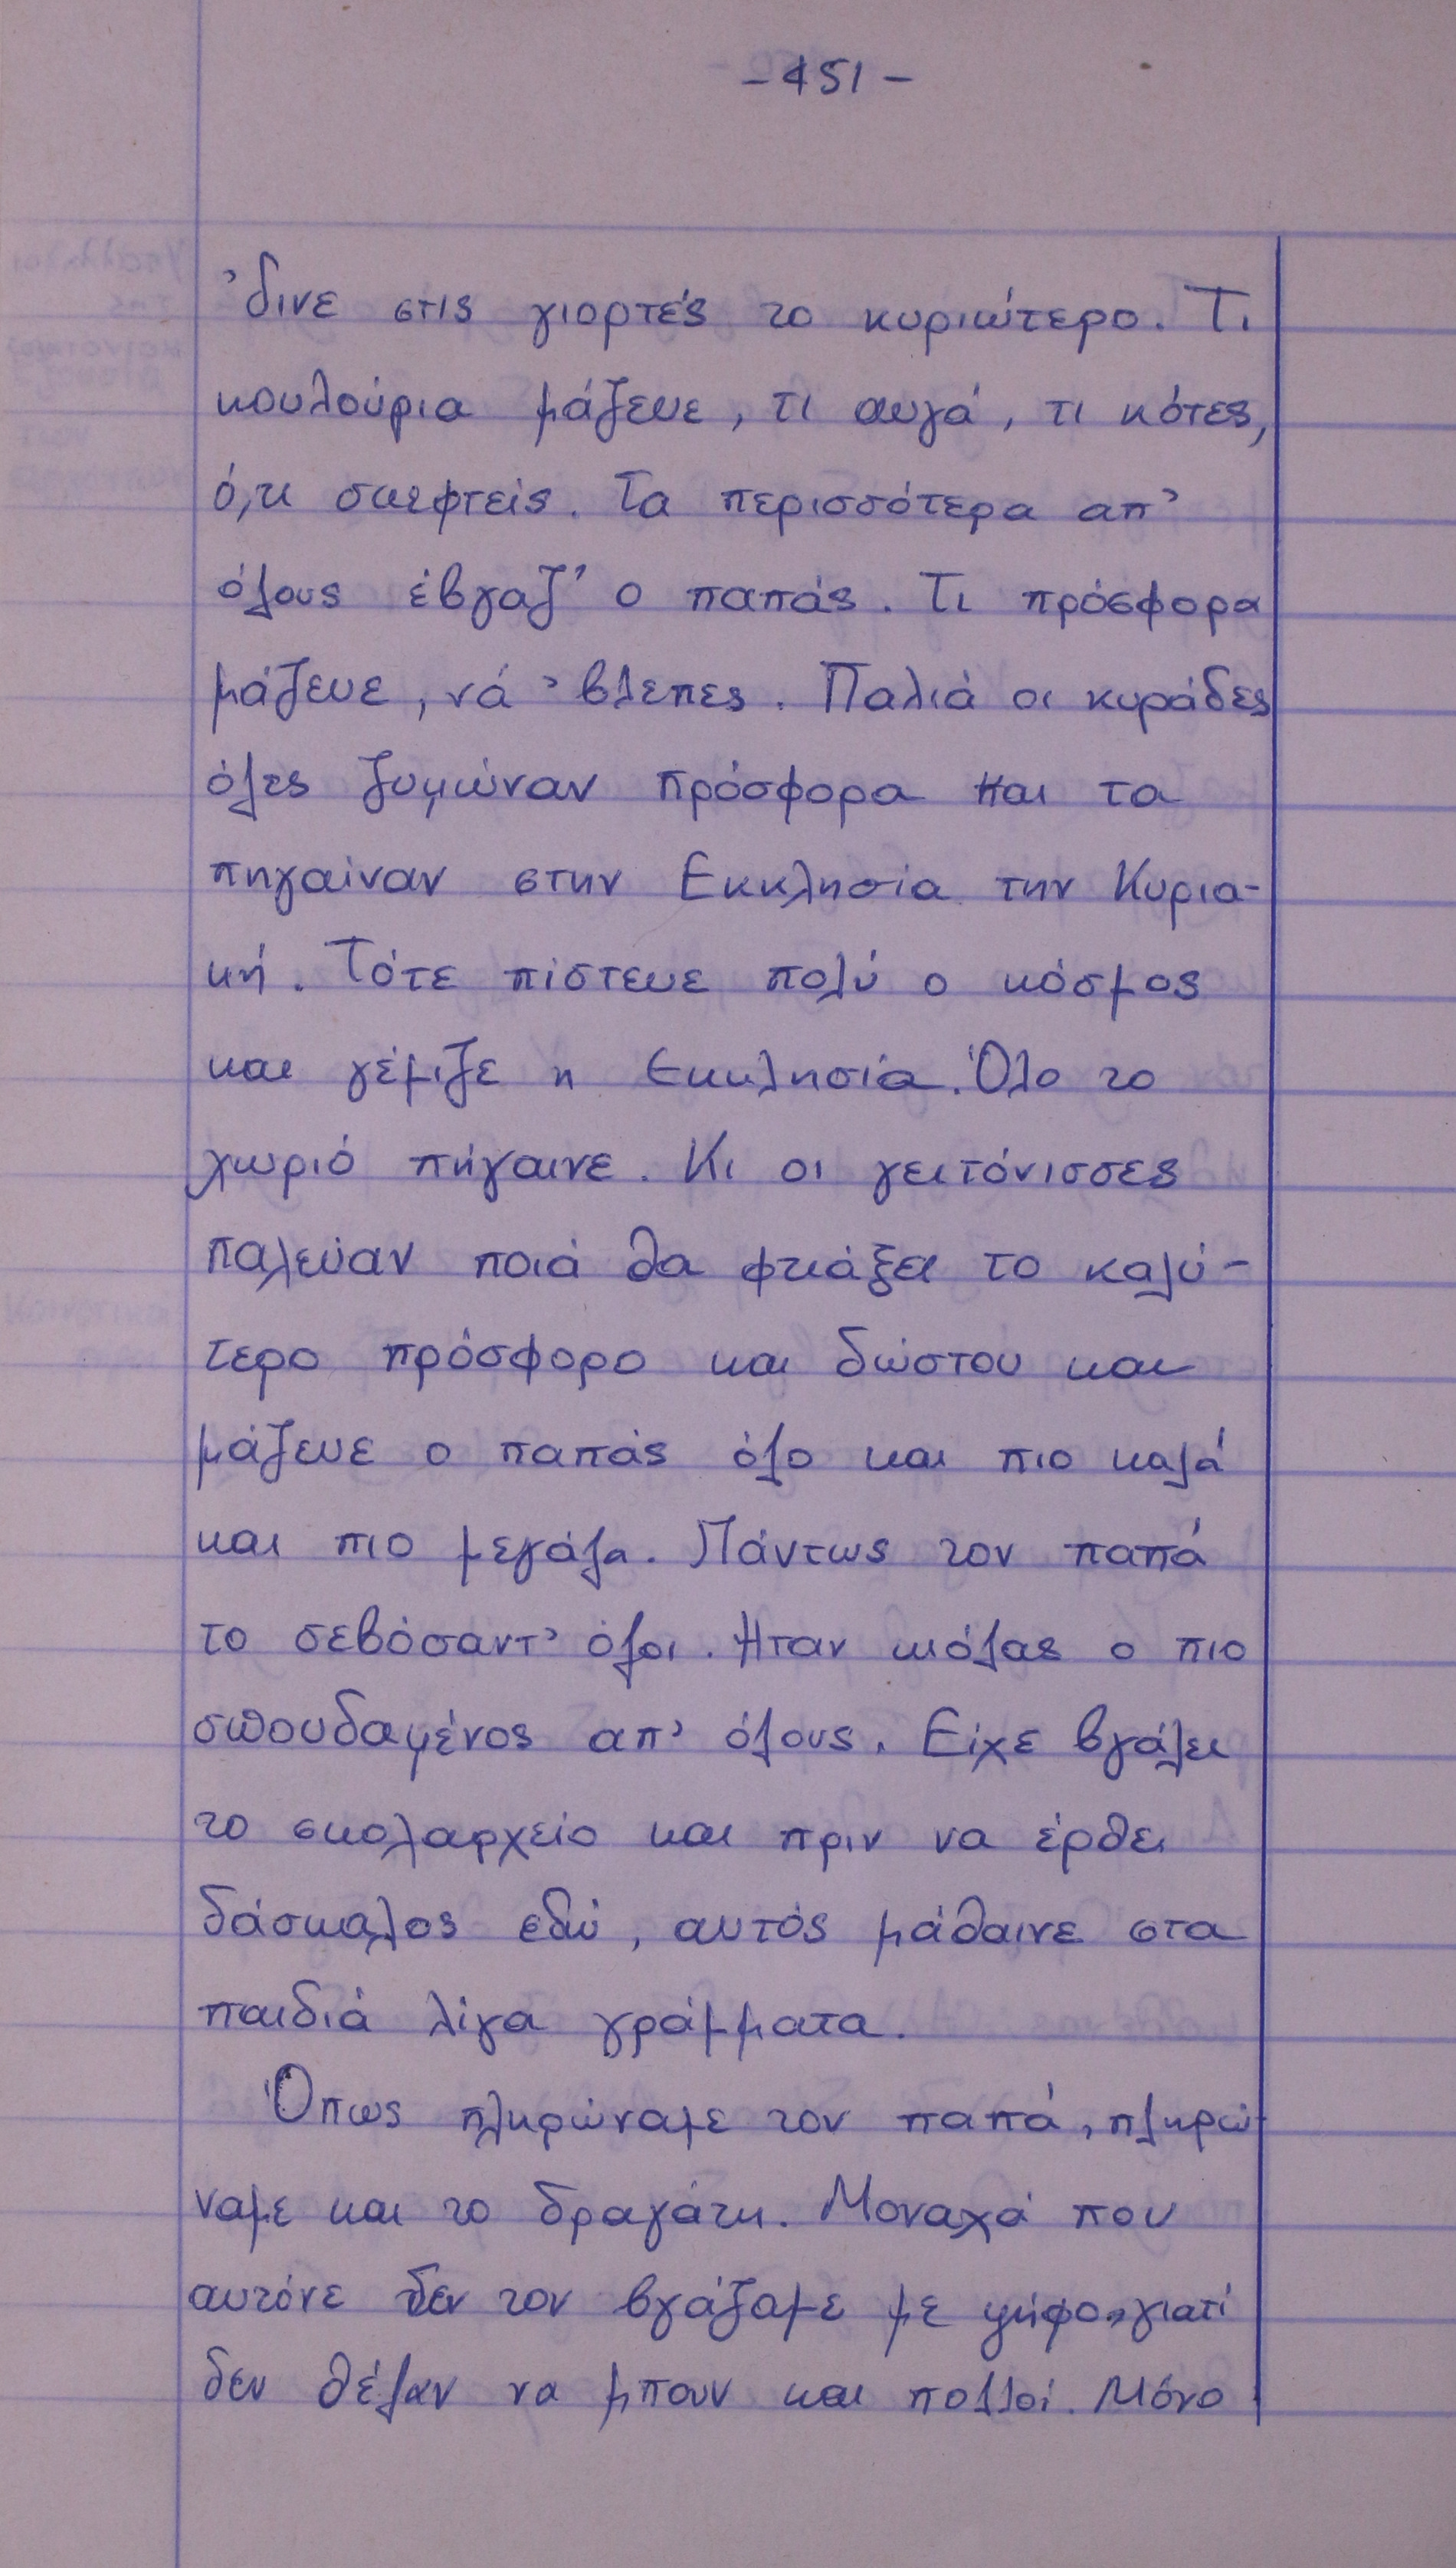 - 451 -
'δινε στις γιορτές το κυριώτερο. Τι
κουλούρια μάζευε, τι αυγά, τι κότες,
ό,τι σκεφτείς. Τα περισσότερα απ'
όλους έβγαζ' ο παπάς. Τι πρόσφορα
μάζευε, νά 'βλεπες. Παλιά οι κυράδες
όλες ζυμώναν πρόσφορα και τα
πηγαίναν στην Εκκλησία την Κυρια-
κή. Τότε πίστευε πολύ ο κόσμος
και γέμιζε η Εκκλησία. Όλο το
χωριό πήγαινε. Κι οι γειτόνισσες
παλεύαν ποιά θα φτιάξει το καλύ-
τερο πρόσφορο και δώστου και
μάζευε ο παπάς όλο και πιο καλά
και πιο μεγάλα. Πάντως τον παπά
το σεβόσαντ' όλοι. Ήταν κιόλας ο πιο
σπουδαμένος απ' όλους. Είχε βγάλει
το σκολαρχείο και πριν να έρθει
δάσκαλος εδώ, αυτός μάθαινε στα
παιδιά λίγα γράμματα.
Όπως πληρώναμε τον παπά, πληρώ-
ναμε και το δραγάτη. Μοναχά που
αυτόνε δεν τον βγάζαμε με ψήφο, γιατί
δεν θέλαν να μπουν και πολλοί. Μόνο